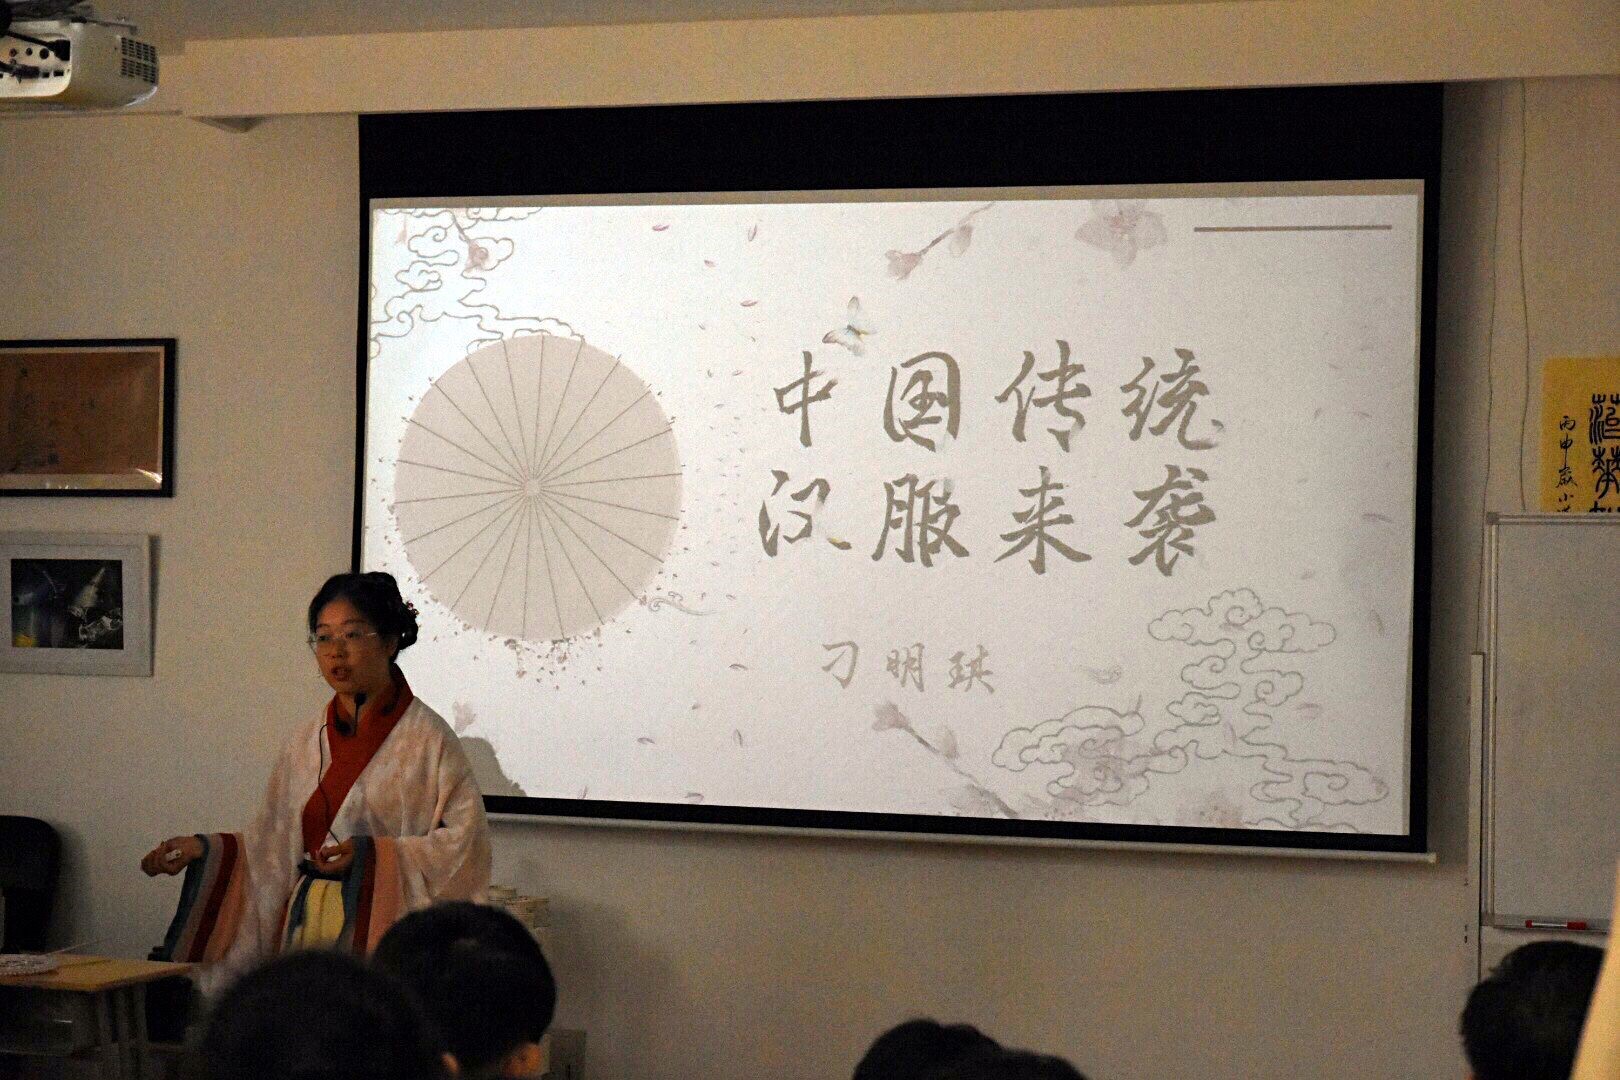 中国传统
汉服来袭
刁明琪
丙申